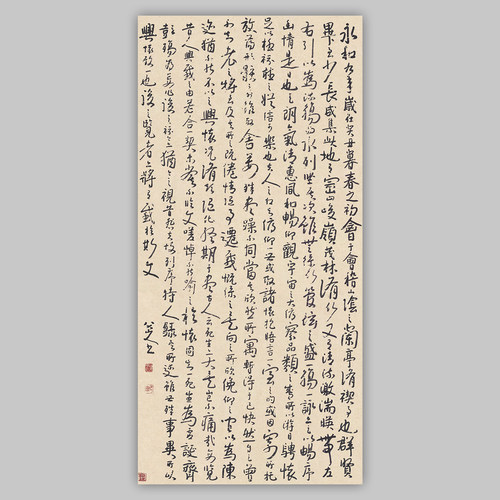 永和九年歲在癸丑暮春之初會于會稽山陰之蘭亭脩禊事也群賢
畢至少長咸集此地有崇山峻嶺茂林脩竹又有清流激湍暎帶左
右引以為流觴曲水列坐其次雖無絲竹管弦之盛觴一詠亦足以暢序
幽情是日也天朗氣清惠風和暢仰觀宇宙之大俯察品類之盛所以遊目騁懷
足以極視聽之娛信可樂也夫人之相與俯仰一世或取諸懷抱晤言一室之內或因寄所託
放浪形骸之外雖取舍萬殊靜躁不同當其欣於所寓暫得於己快然自足曾
不知老之將至及其所之既倦情隨事遷感慨係之矣向之所欣俛仰之間以為陳
迹猶不能不以之興懷況脩短隨化終期于盡古人云死生亦大矣豈不痛哉每覽
昔人興感之由若合一契未嘗不臨文嗟悼不能喻之於懷固知一死生為虛誕齊
彭殤為妄作後之視今亦猶今之視昔悲夫故列序時人錄其所述雖世殊事異所以
興懷其致一也後之覽者亦將有感於斯文